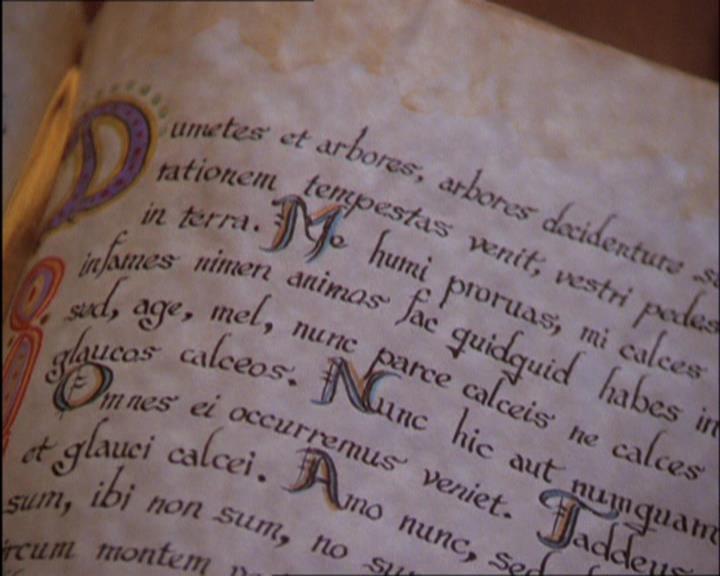 Dumetes et arbores, arbores decidenture
rationem tempestas venit, vestri pedes
in terra. Me humi proruas, mi calces
infames nimen animos fac quidquid habes in
sed, age, mel, nunc parce calceis ne calces
glaucos calceos. Nunc hic aut numquam
Omnes ei occurremus veniet. Taddeus
et glauci calcei. Amo nunc, sed
sum, ibi non sum, no
circum montem